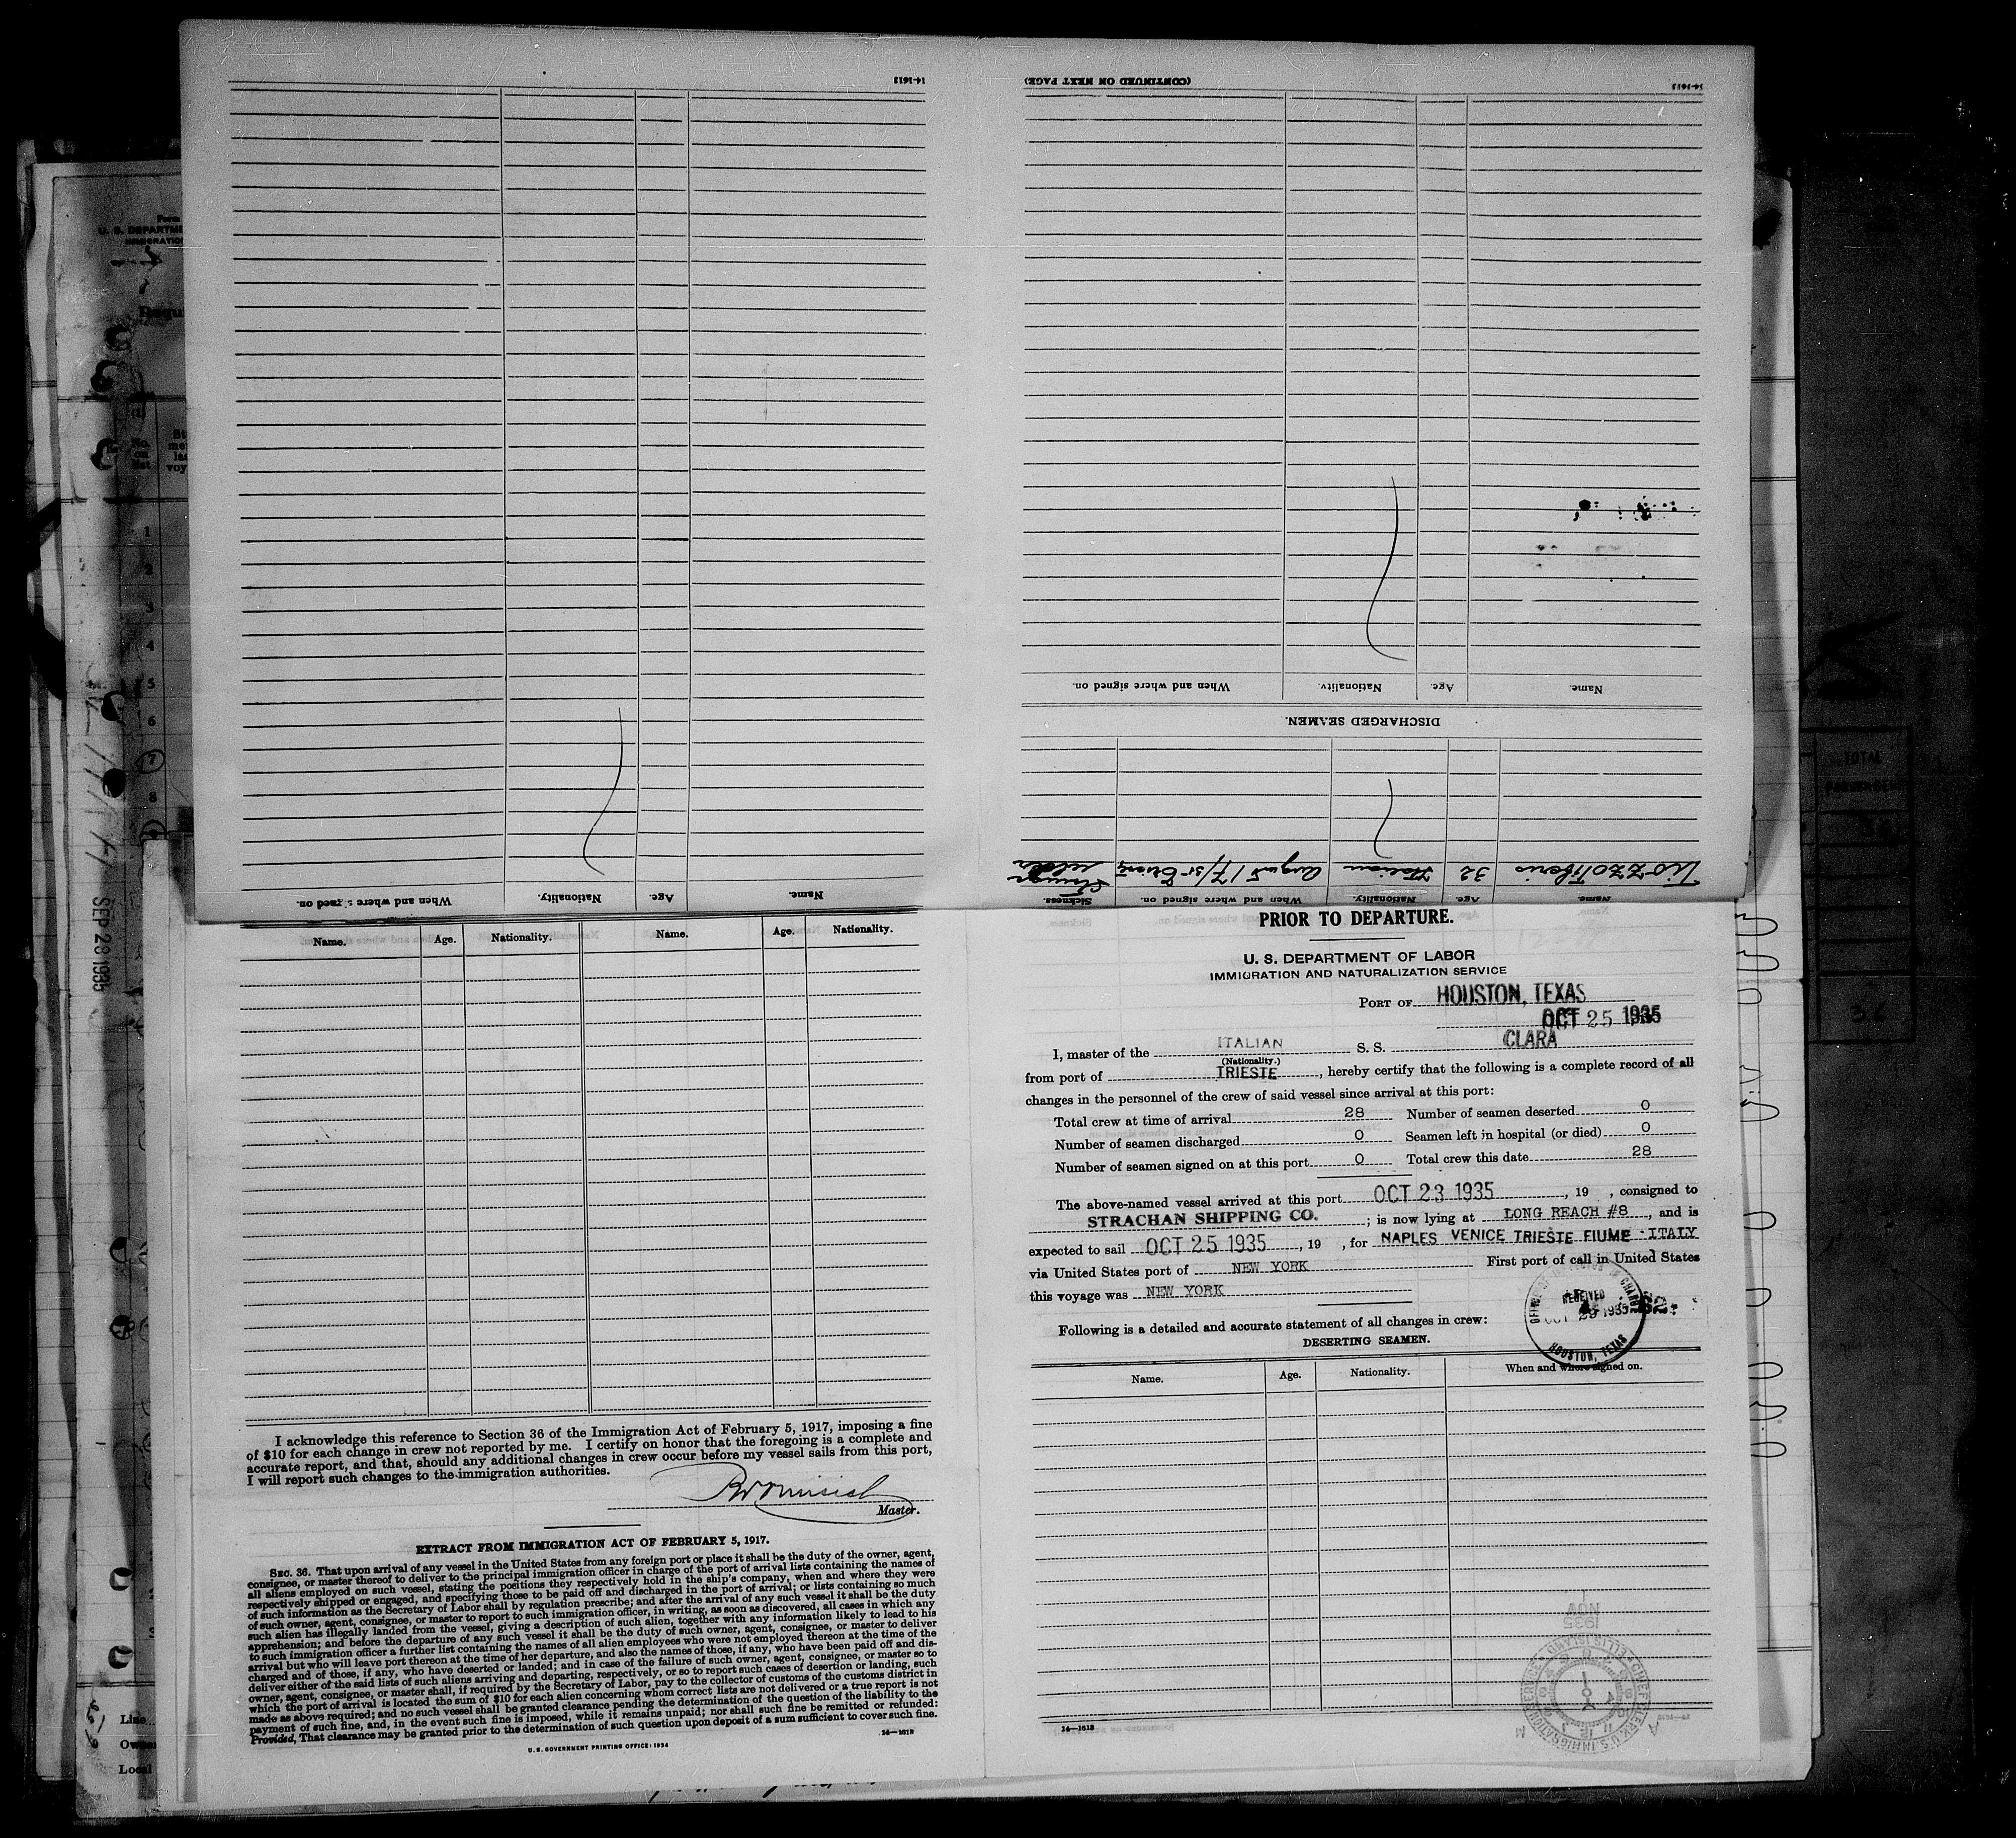 14-1613
(CONTINUED ON NEXT PAGE)
14-1613
Name.
Age.
Nationality.
When and where signed on.
DISCHARGED SEAMEN.
32 Italian August 17/35
Name.
Age.
Nationality.
When and where signed on.
Sickness.
Name.
Age.
Nationality.
When and where signed on.
Form
U. S. DEPARTME
IMMIGRATION
Requi
No.
on
list
1
2
3
4
5
6
7
8
SEP 28 1935
Line
Owne
Local
TOTAL
Name.
Age.
Nationality.
Name.
Age.
Nationality.
I acknowledge this reference to Section 36 of the Immigration Act of February 5, 1917, imposing a fine
of $10 for each change in crew not reported by me. I certify on honor that the foregoing is a complete and
accurate report, and that, should any additional changes in crew occur before my vessel sails from this port,
I will report such changes to the immigration authorities.
Master.
EXTRACT FROM IMMIGRATION ACT OF FEBRUARY 5, 1917.
SEC. 36. That upon arrival of any vessel in the United States from any foreign port or place it shall be the duty of the owner, agent,
consignee, or master thereof to deliver to the principal immigration officer in charge of the port of arrival lists containing the names of
all aliens employed on such vessel, stating the positions they respectively hold in the ship's company, when and where they were
respectively shipped or engaged, and specifying those to be paid off and discharged in the port of arrival; or lists containing so much
of such information as the Secretary of Labor shall by regulation prescribe; and after the arrival of any such vessel it shall be the duty
of such owner, agent, consignee, or master to report to such immigration officer, in writing, as soon as discovered, all cases in which any
such alien has illegally landed from the vessel, giving a description of such alien, together with any information likely to lead to his
apprehension; and before the departure of any such vessel it shall be the duty of such owner, agent, consignee, or master to deliver
to such immigration officer a further list containing the names of all alien employees who were not employed thereon at the time of the
arrival but who will leave port thereon at the time of her departure, and also the names of those, if any, who have been paid off and dis-
charged and of those, if any, who have deserted or landed; and in case of the failure of such owner, agent, consignee, or master so to
deliver either of the said lists of such aliens arriving and departing, respectively, or so to report such cases of desertion or landing, such
owner, agent, consignee, or master shall, if required by the Secretary of Labor, pay to the collector of customs of the customs district in
which the port of arrival is located the sum of $10 for each alien concerning whom correct lists are not delivered or a true report is not
made as above required; and no such vessel shall be granted clearance pending the determination of the question of the liability to the
payment of such fine, and, in the event such fine is imposed, while it remains unpaid; nor shall such fine be remitted or refunded:
Provided, That clearance may be granted prior to the determination of such question upon deposit of a sum sufficient to cover such fine.
14—1613
U. S. GOVERNMENT PRINTING OFFICE: 1934
PRIOR TO DEPARTURE.
U. S. DEPARTMENT OF LABOR
IMMIGRATION AND NATURALIZATION SERVICE
PORT OF HOUSTON, TEXAS
OCT 25 1935
I, master of the ITALIAN S. S. CLARA
(Nationality.)
from port of TRIESTE, hereby certify that the following is a complete record of all
changes in the personnel of the crew of said vessel since arrival at this port:
Total crew at time of arrival 28 Number of seamen deserted 0
Number of seamen discharged 0 Seamen left in hospital (or died) 0
Number of seamen signed on at this port 0 Total crew this date 28
The above-named vessel arrived at this port OCT 23 1935, 19 , consigned to
STRACHAN SHIPPING CO. ; is now lying at LONG REACH #8, and is
expected to sail OCT 25 1935, 19 , for NAPLES VENICE TRIESTE FIUME - ITALY
via United States port of NEW YORK First port of call in United States
this voyage was NEW YORK
RECEIVED
HOUSTON, TEXAS
Following is a detailed and accurate statement of all changes in crew:
DESERTING SEAMEN.
Name.
Age.
Nationality.
When and where signed on.
14—1613